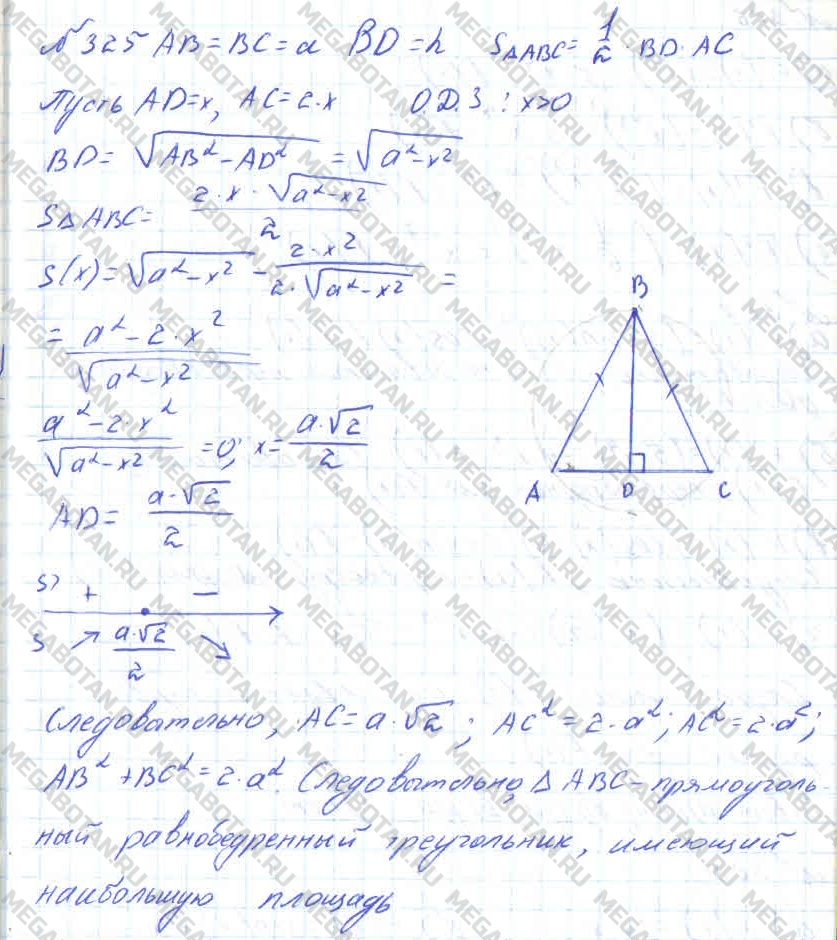 №325 AB = BC = a BD = h S△ABC = 1/2 · BD · AC
Пусть AD = x, AC = 2·x О.Д.З : x>0
BD = √(AB² − AD²) = √(a² − x²)
S△ABC = (2·x·√(a² − x²))/2
S(x) = √(a² − x²) − (2·x²)/(2·√(a² − x²)) =
= (a² − 2·x²)/√(a² − x²)
(a² − 2·x²)/√(a² − x²) = 0; x = (a·√2)/2
AD = (a·√2)/2
S' + −
S ↗ (a·√2)/2 ↘
B
A D C
Следовательно, AC = a·√2; AC² = 2·a²; AC² = 2·a²;
AB² + BC² = 2·a². Следовательно, △ABC – прямоуголь-
ный равнобедренный треугольник, имеющий
наибольшую площадь
MEGABOTAN.RU